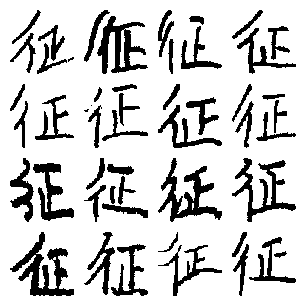 征征征征
征征征征
征征征征
征征征征